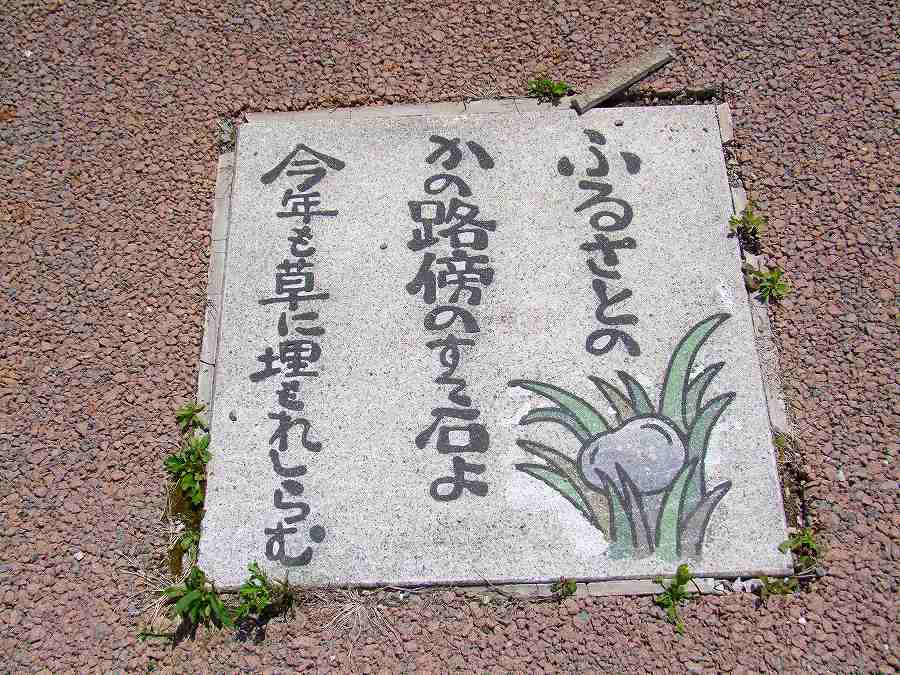 ふるさとの
かの路傍のすて石よ
今年も草に埋もれしらむ